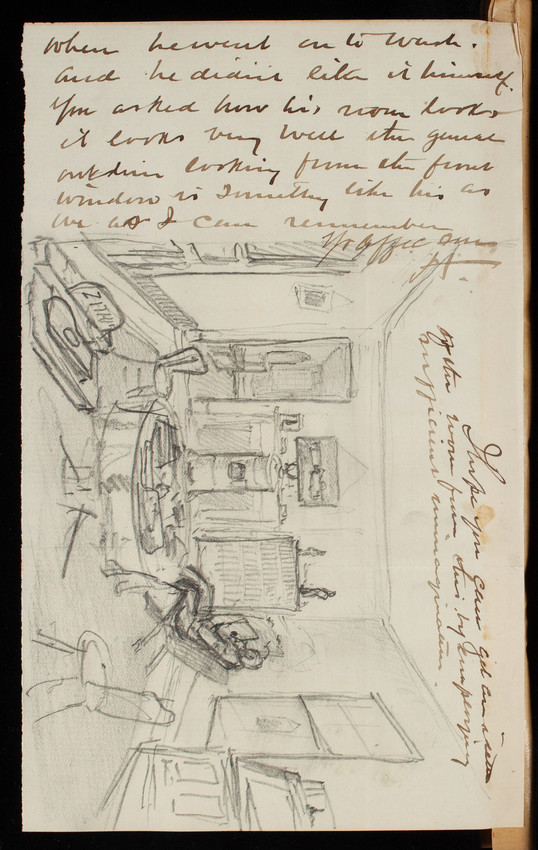 when he went on to Wash.
and he didn't like it himself.
You asked how his room looks
it looks very well the general
outline looking from the front
window is something like this as
we as I can remember
Yr affec son
H.
I hope you can get an idea
of the room from this by employing
sufficient immagination.